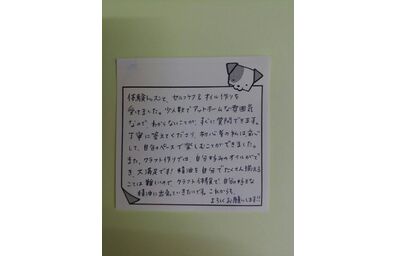 体験レッスンと、セルフケア&オイル作りを
受けました。少人数でアットホームな雰囲気
なので、わからないことが、すぐに質問できます。
丁寧に答えてくださり、初心者の私は安心
して、自分のペースで楽しむことができました。
また、クラフト作りでは、自分好みのオイルができ
き、大満足です! 精油を自分でたくさん揃える
ことは難しいので、クラフト体験で自分の好きな
精油に出会っていきたいです。これからも、
よろしくお願いします!!